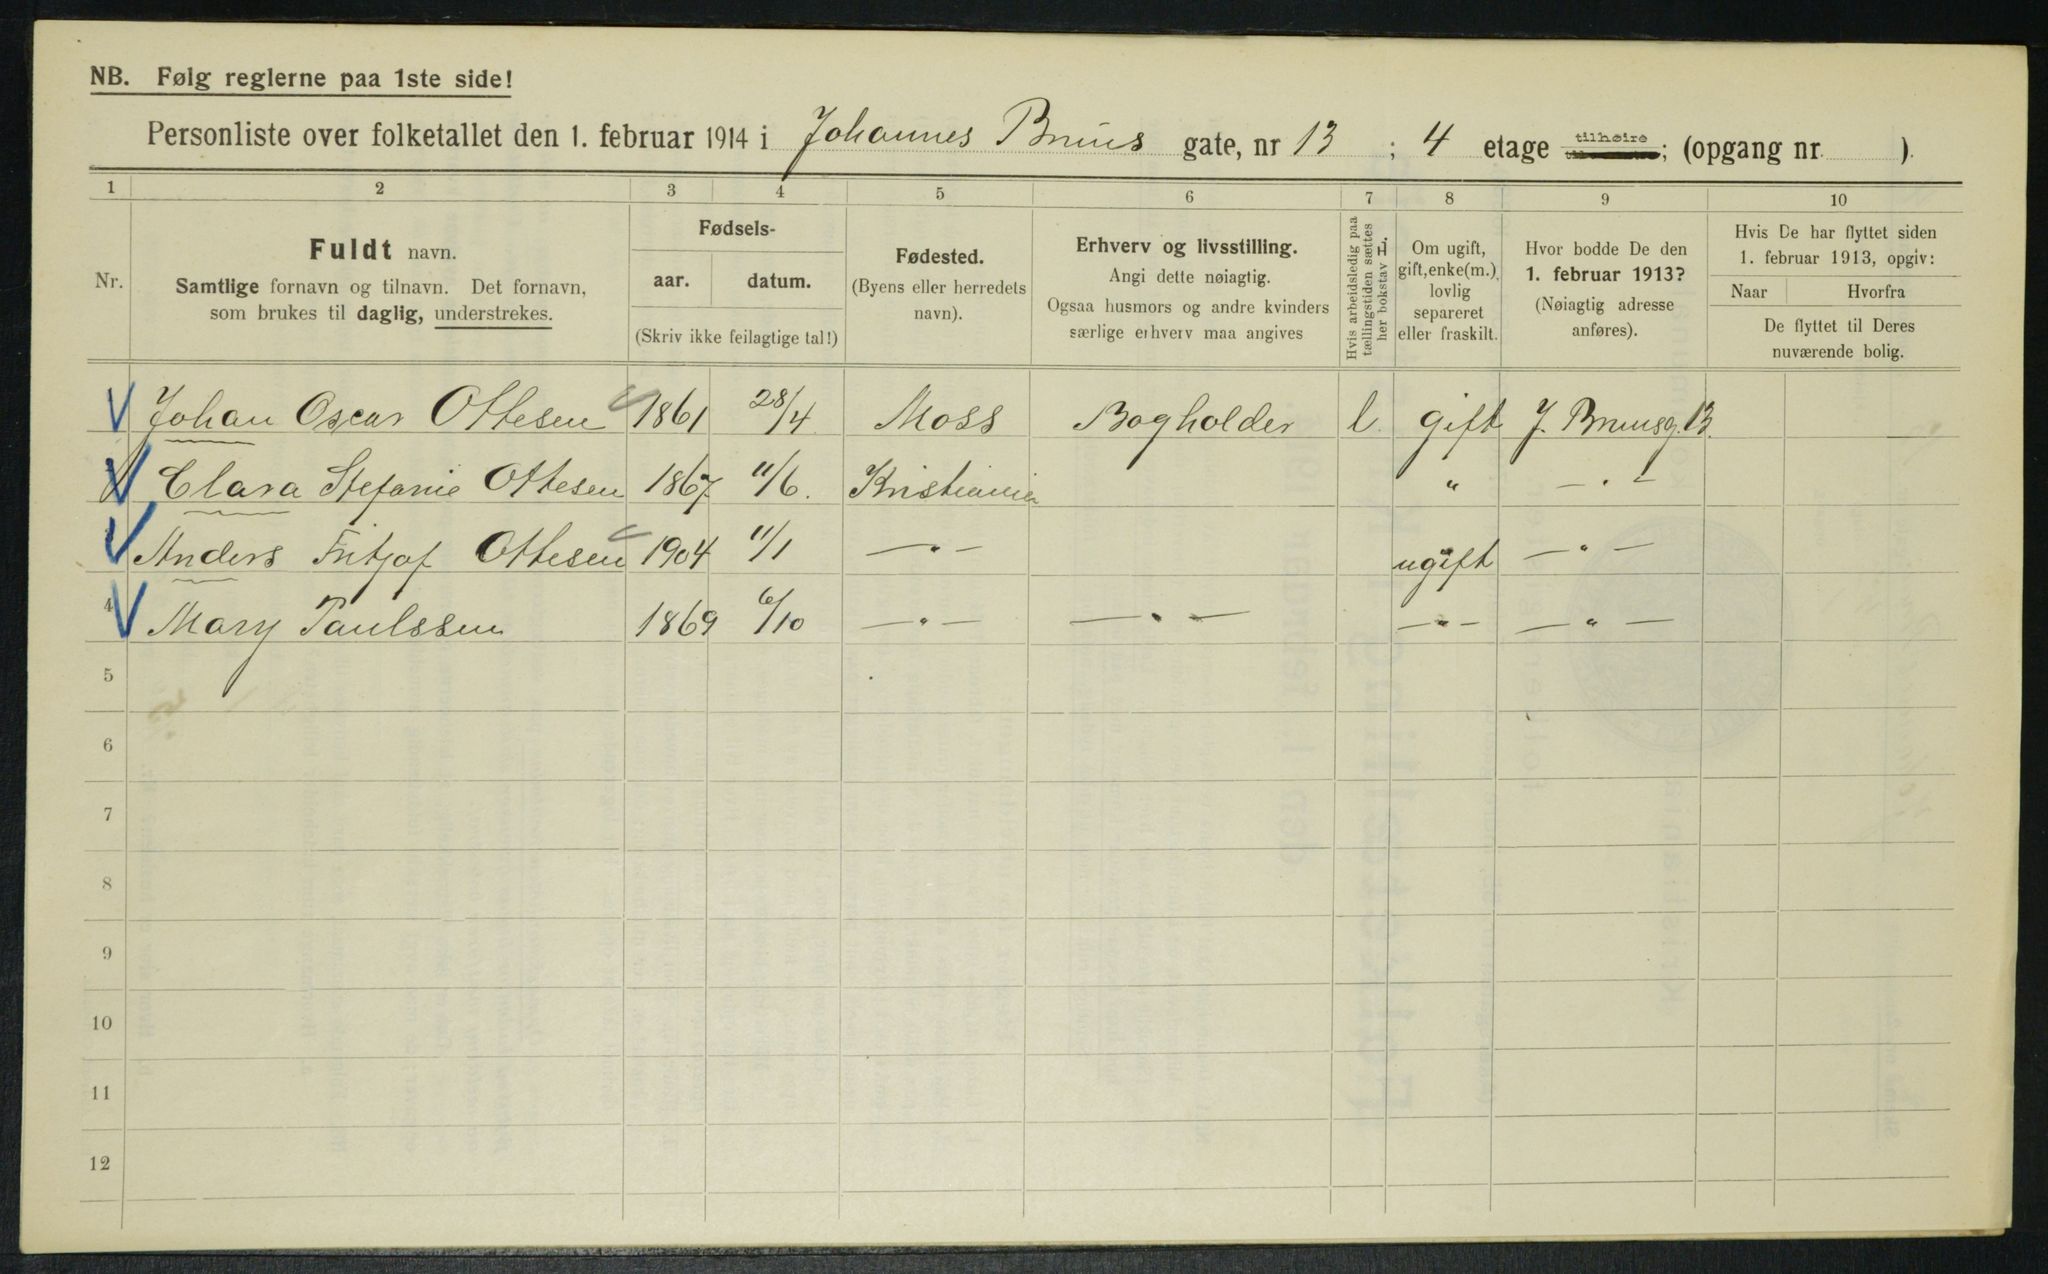 NB. Følg reglerne paa 1ste side!
Personliste over folketallet den 1. februar 1914 i Johannes Bruus gate, nr 13 ; 4 etage tilhøire; (opgang nr. ).
1 2 3 4 5 6 7 8 9 10
Nr.
Fuldt navn.
Samtlige fornavn og tilnavn. Det fornavn,
som brukes til daglig, understrekes.
Fødsels-
aar. datum.
(Skriv ikke feilagtige tal!)
Fødested.
(Byens eller herredets
navn).
Erhverv og livsstilling.
Angi dette nøiagtig.
Ogsaa husmors og andre kvinders
særlige erhverv maa angives
Hvis arbeidsledig paa
tællingstiden sættes
her bokstav L.
Om ugift,
gift, enke(m.),
lovlig
separeret
eller fraskilt.
Hvor bodde De den
1. februar 1913?
(Nøiagtig adresse
anføres).
Hvis De har flyttet siden
1. februar 1913, opgiv:
Naar Hvorfra
De flyttet til Deres
nuværende bolig.
Johan Oscar Ottesen 1861 28/4 Moss Bogholder l. gift J. Bruusg. 13.
Clara Stefanie Ottesen 1867 11/6. Kristiania " — " —
Anders Fritjof Ottesen 1904 11/1 — " — ugift — " —
4 Mary Paulssen 1869 6/10 — " — — " — — " — — " —
5
6
7
8
9
10
11
12